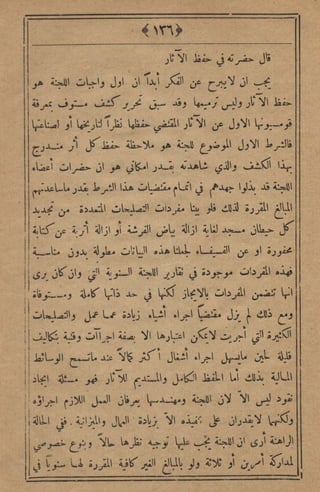 ﴿١٣٦﴾
قال حضرته في حفظ الآثار
يجب ان لا يبرح عن الفكر أبداً ان اول واجبات اللجنة هو
حفظ الآثار وليس ترميمها وقد سبق تحرير كشف مستوف بمعرفة
قومسيونها الاول عن الآثار المقتضي حفظها نظراً لتاريخها أو لصناعتها
فالشرط الاول الموضوع للجنة هو ملاحظة حفظ كل أثر مندرج
بهذا الكشف والذي شاهدته بقدر امكاني هو ان حضرات أعضاء
اللجنة قد بذلوا جهدهم في اتمام مقتضيات هذا الشرط بقدر ماساعدتهم
المبالغ المقررة لذلك فلو بينا مفردات التصليحات المتعددة من تجديد
كل حيطان مسجد لغاية ازالة بياض الفرشة أو ازالة أتربة عن كتابة
محفورة او عن الفسيفساء لجعلنا هذه البيانات مطولة بدون مناسبة
فهذه المفردات موجودة في تقارير اللجنة السنوية التي وان كان يرى
انها تتضمن المفردات بالايجاز لكنها في حد ذاتها كاملة ومستوفاة
ومع ذلك لم يزل مقتضياً اجراء أشياء زيادة عما عمل والتصليحات
الكثيرة التي أجريت لايمكن اعتبارها الا بصفة اجراآت وقتية بتكاليف
قليلة لحين مايسهل اجراء أشغال أكثر كمالاً عند ماتسمح الوسائط
المالية بذلك أما الحفظ الكامل والمستديم للآثار فهو مسئلة ايجاد
نقود ليس الاّ لان اللجنة ومهندسيها يعرفان العمل اللازم اجراؤه
ولكنهما لايقدران على تنفيذه الاّ بزيادة العمال والميزانية . ففي الحالة
الراهنة أرى ان اللجنة يجب عليها توجيه نظرها حالاً وبنوع خصوصي
لمداركة أمرين أو ثلاثة ولو بالمبالغ الغير كافية المقررة لها سنوياً في